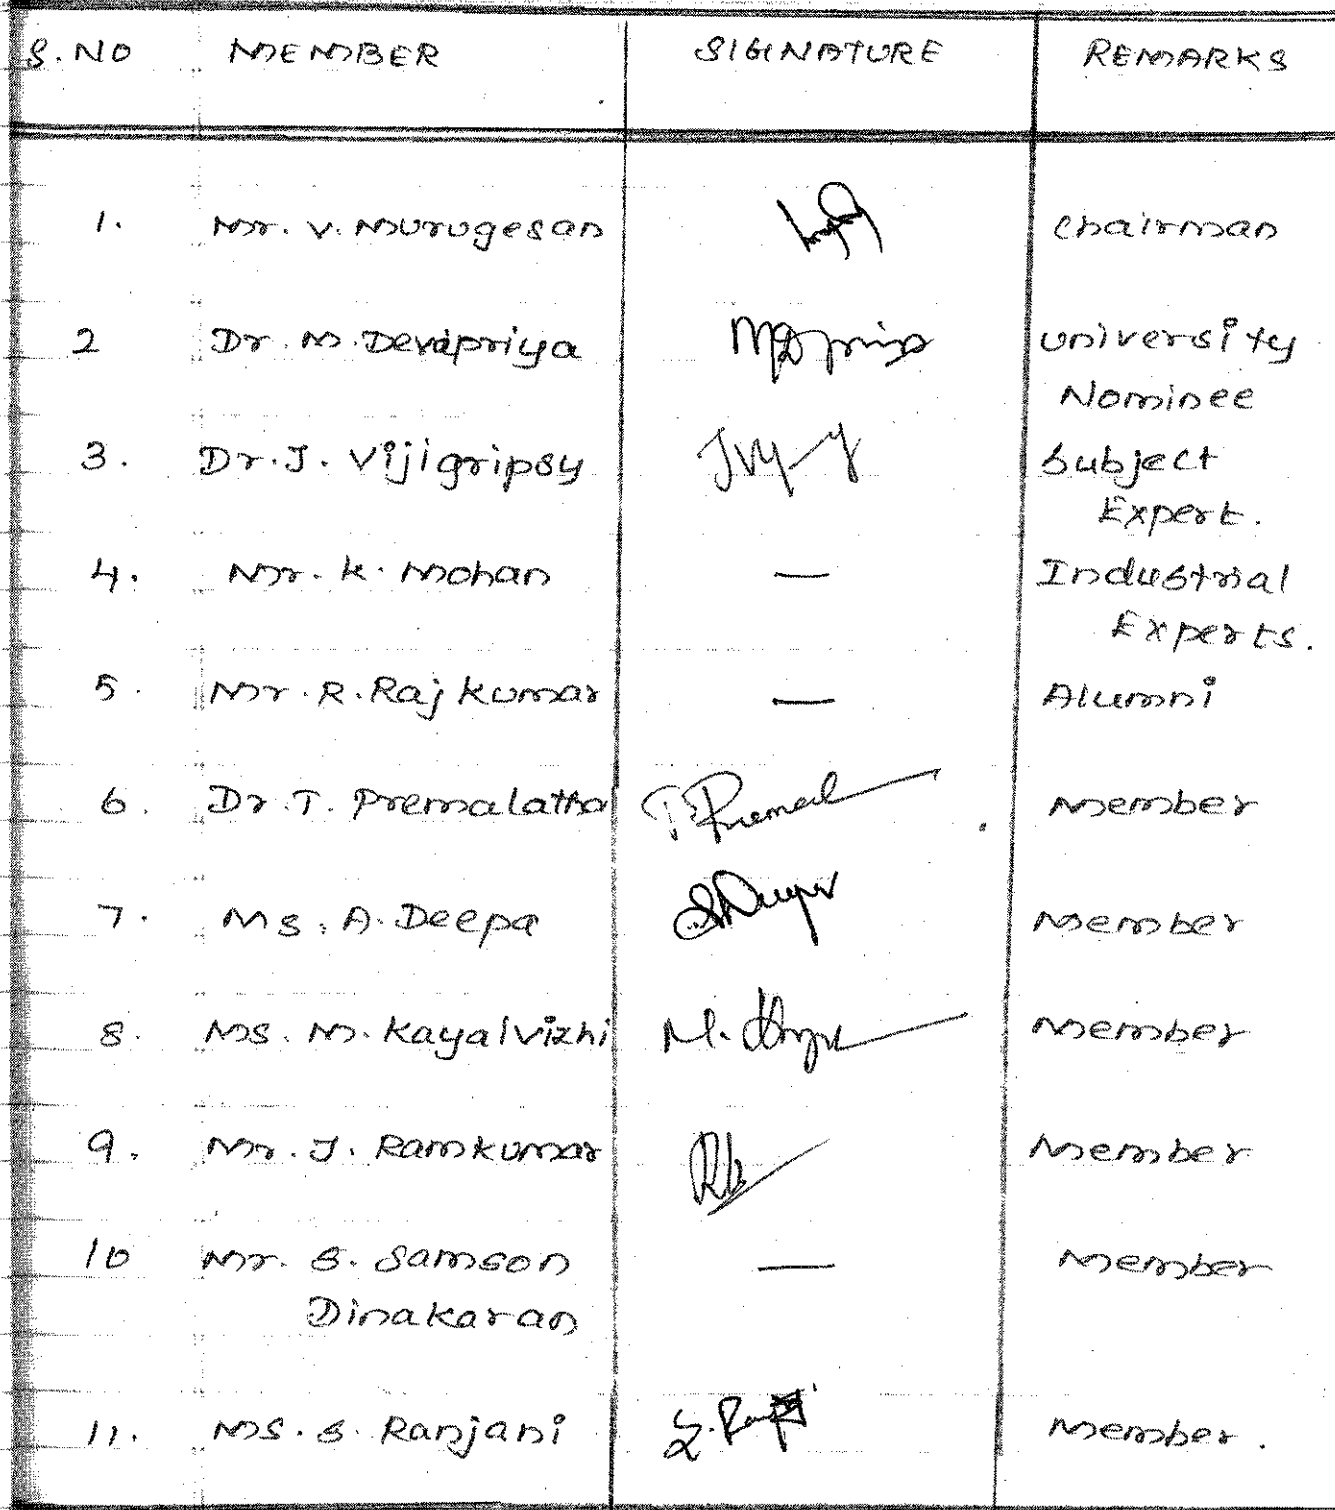 S.NO MEMBER SIGNATURE REMARKS
1. Mr. V. Murugesan Chairman
2 Dr. M. Devapriya University
Nominee
3. Dr. J. Vijigripsy Subject
Expert.
4. Mr. K. Mohan — Industrial
Experts.
5. Mr. R. Raj kumar — Alumni
6. Dr. T. Premalatha T. Premal Member
7. Ms. A. Deepa Member
8. Ms. M. Kayalvizhi Member
9. Mr. J. Ramkumar Member
10 Mr. S. Samson — Member
Dinakaran
11. Ms. S. Ranjani Member.